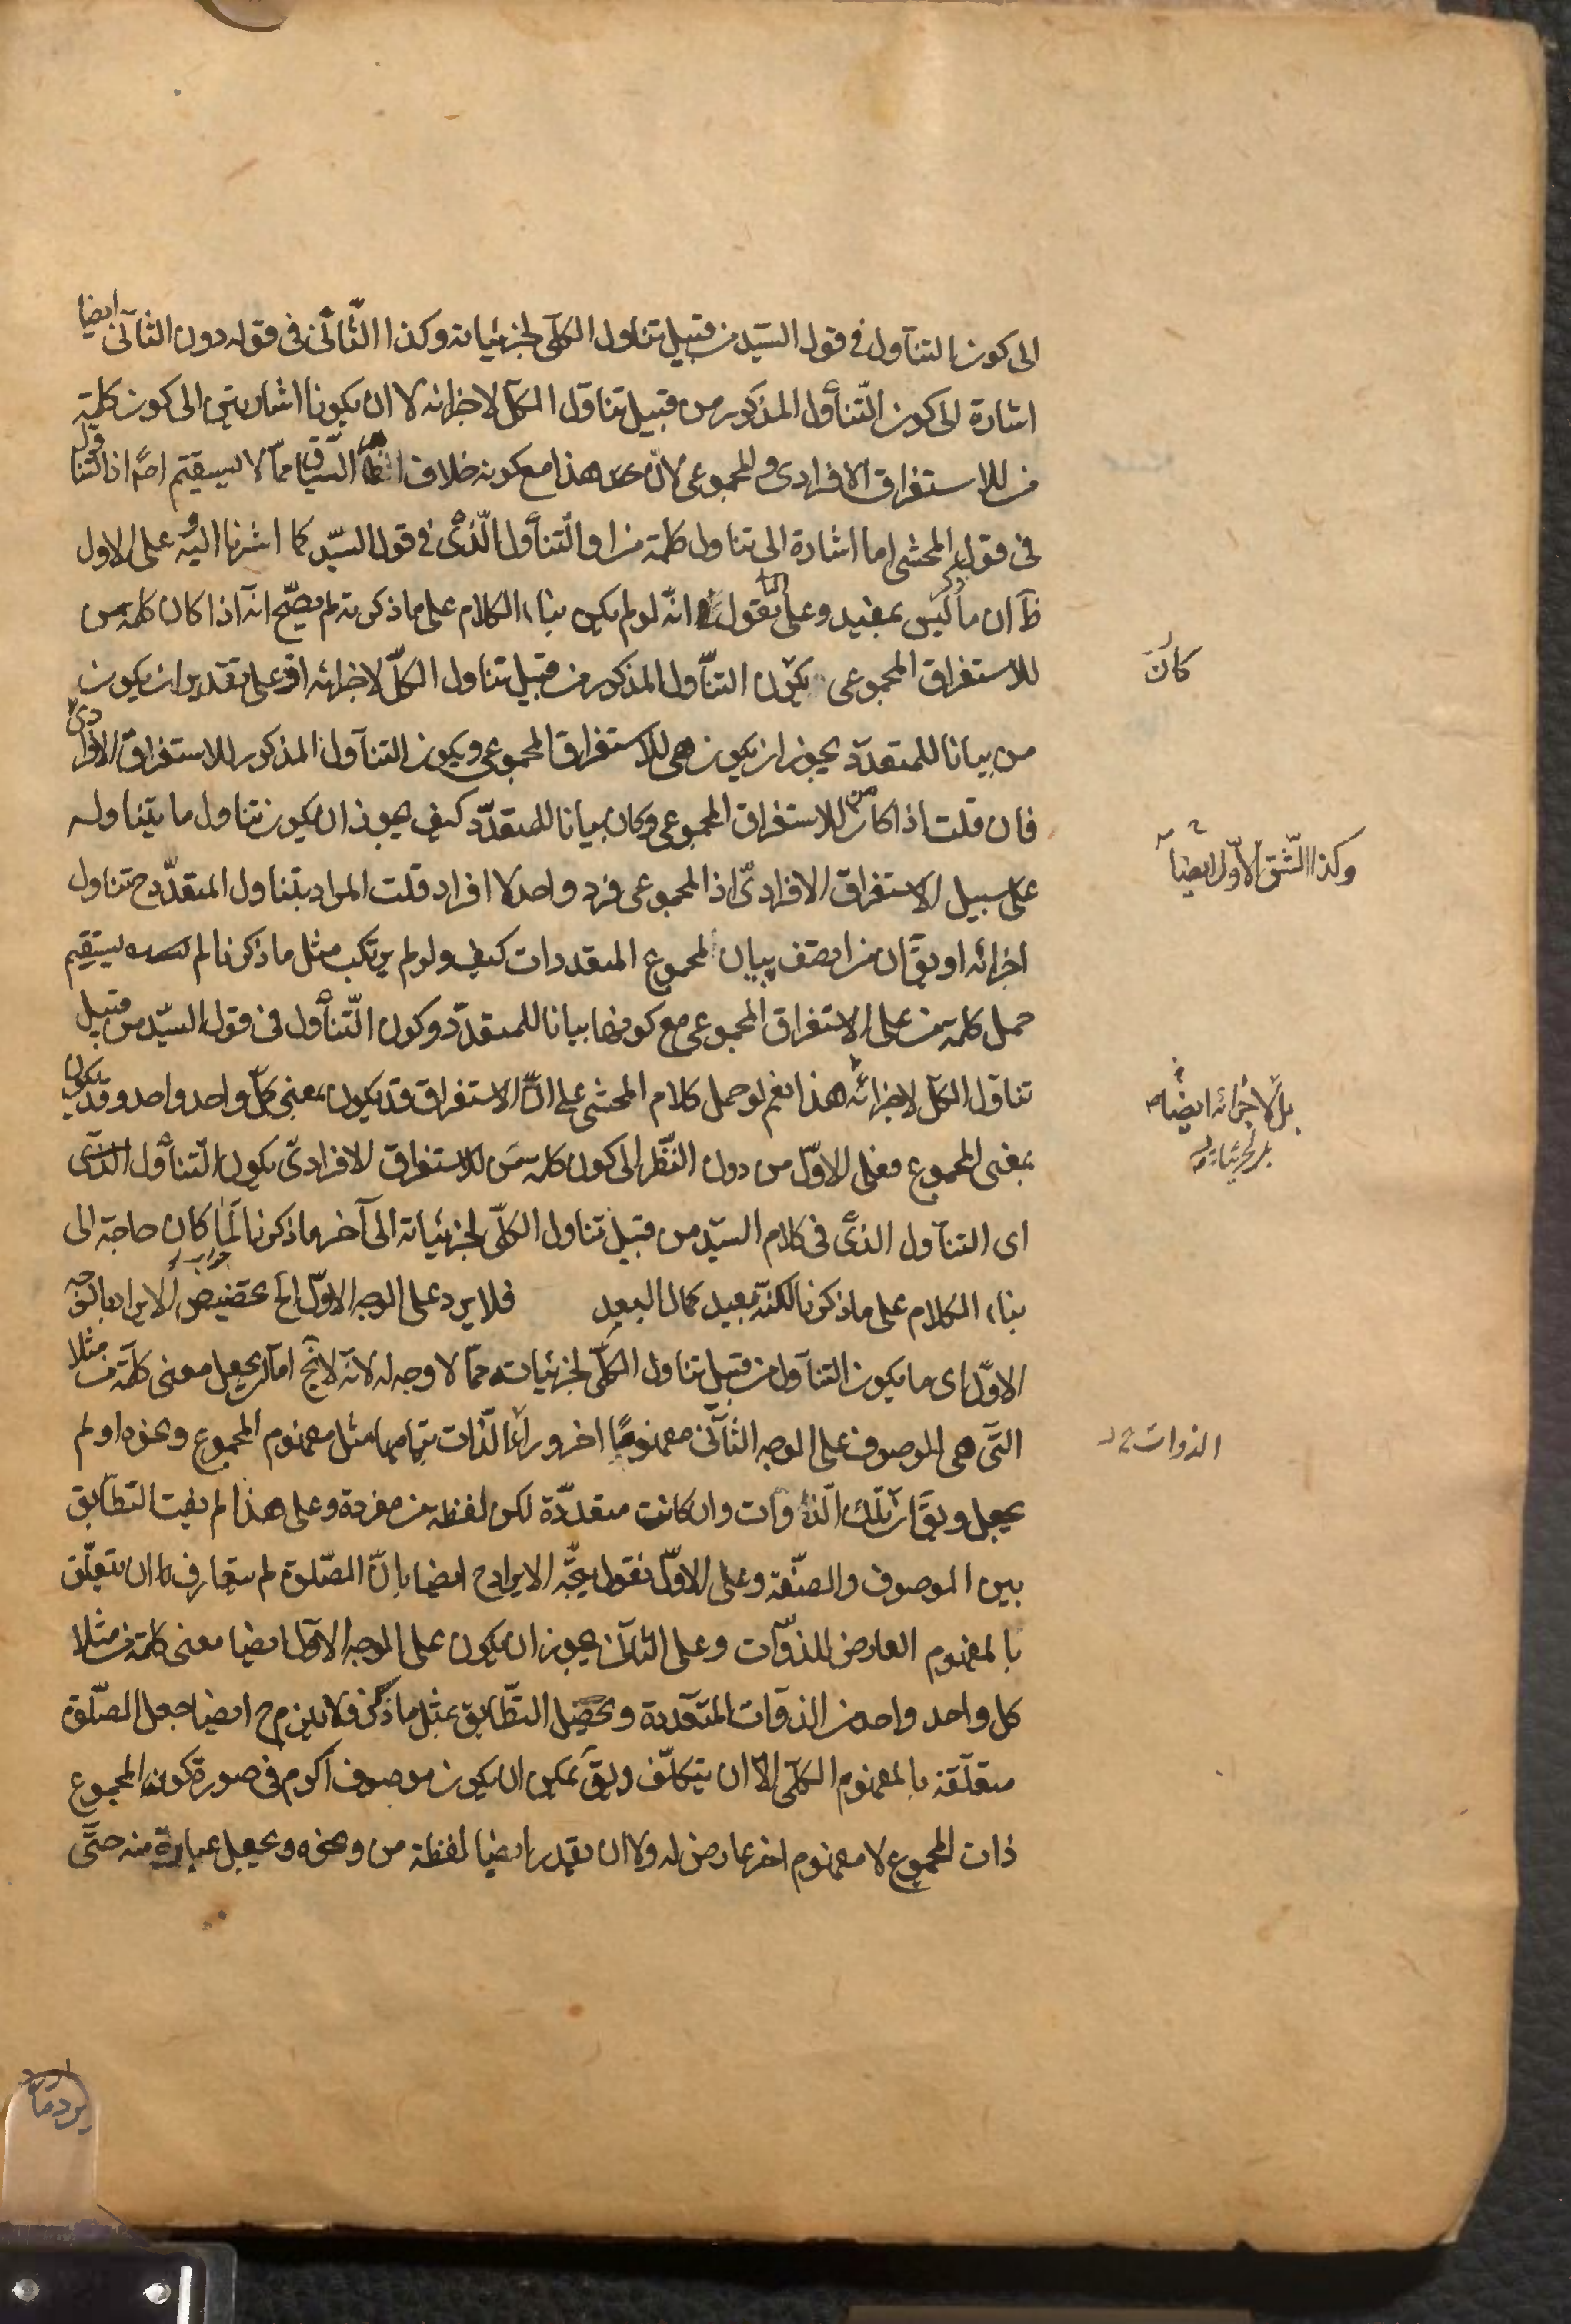 الى كون التناول فى قول السيّد من قبيل تناول الكلّى لجزئياته وكذا الثّانى فى قوله دون الثانى ايضا
اشارة الى كون التّناول المذكور من قبيل تناول الكلّ لاجزائه لا ان يكونا اشارتين الى كون كلمة
من للاستغراق الافرادى والمجموعى لانّ هذا مع كونه خلاف السّياق ممّا لا يستقيم اذ التناول
فى قول المحشى اما اشارة الى تناول كلمة من او التّناول الّذى فى قول السيّد كما اشرنا اليه على الاول
ظ ان ما ذكر ليس بمفيد وعلى الثانى نقول انّه لو لم يكن بناء الكلام على ما ذكرته لم يصّح انه اذا كان كلمة من
للاستغراق المجموعى يكون التناول المذكور من قبيل تناول الكلّ لاجزائه اذ على تقدير ان يكون
من بيانا للمتعدّد يجوز ان يكون هى للاستغراق المجموعى ويكون التناول المذكور للاستغراق الافرادى
فان قلت اذا كان من للاستغراق المجموعى وكان بيانا للمتعدّد كيف يجوز ان يكون تناول ما يتناوله
على سبيل الاستغراق الافرادىّ اذ المجموعى فرد واحد لا افراد قلت المراد بتناول المتعدّد ح تناول
اجزائه او يقّ ان من بيان المجموع المتعددات كيف ولو لم يرتكب مثل ما ذكرنا لم يستقيم
حمل كلمة من على الاستغراق المجموعى مع كونها بيانا للمتعدّد وكون التّناول فى قول السيّد من قبيل
تناول الكلّ لاجزائه هذا نعم لو حمل كلام المحشى على انّ الاستغراق قد يكون بمعنى كلّ واحد واحد وقد يكون
بمعنى المجموع فعلى الاوّل من دون النّظر الى كون كلمة من للاستغراق الافرادىّ يكون التّناول الذى
اى التناول الذى فى كلام السيّد من قبيل تناول الكلّى لجزئياته الى آخر ما ذكرنا لما كان حاجة الى
بناء الكلام على ما ذكرنا لكنه بعيد كمال البعد فلا يرد على الوجه الاوّل الخ تخصيص الايراد بالوجه
الاوّل اى ما يكون التناول من قبيل تناول الكلّى لجزئياته ممّا لا وجه له لانه لا يخ اما ان يجعل معنى كلمة من مثلا
التى هى الموصوف على الوجه الثّانى مفهومًا اخر وراء الذّات بتمامها مثل مفهوم المجموع ونحوه او لم
يجعل ويقّ ان تلك الذوات وان كانت متعدّدة لكن لفظة من مفردة وعلى هذا لم يفت التّطابق
بين الموصوف والصّفة وعلى الاوّل نقول يتجّه الايراد ح ايضا بانّ الصّلوة لم يتعارف ان تتعلّق
بالمفهوم العارض للذوّات وعلى الثانى يجوز ان يكون على الوجه الاول ايضا معنى كلمة من مثلا
كل واحد واحد من الذوات المتعدّدة ويحصل التّطابق بمثل ما ذكر فلا يلزم ح ايضا جعل الصّلوة
متعلّقة بالمفهوم الكلّى الا ان يتكلّف ويقّ يمكن ان يكون موصوف اكرم فى صورة كونه المجموع
ذات المجموع لا مفهوم اخر عارض له ولا ان يقدر ايضا لفظة من ونحوه ويجعل عبارة منه حتّى
كان
وكذا الشّق الاوّل ايضا
بل لاجزائه ايضا
بل لجزئياته
الذوات